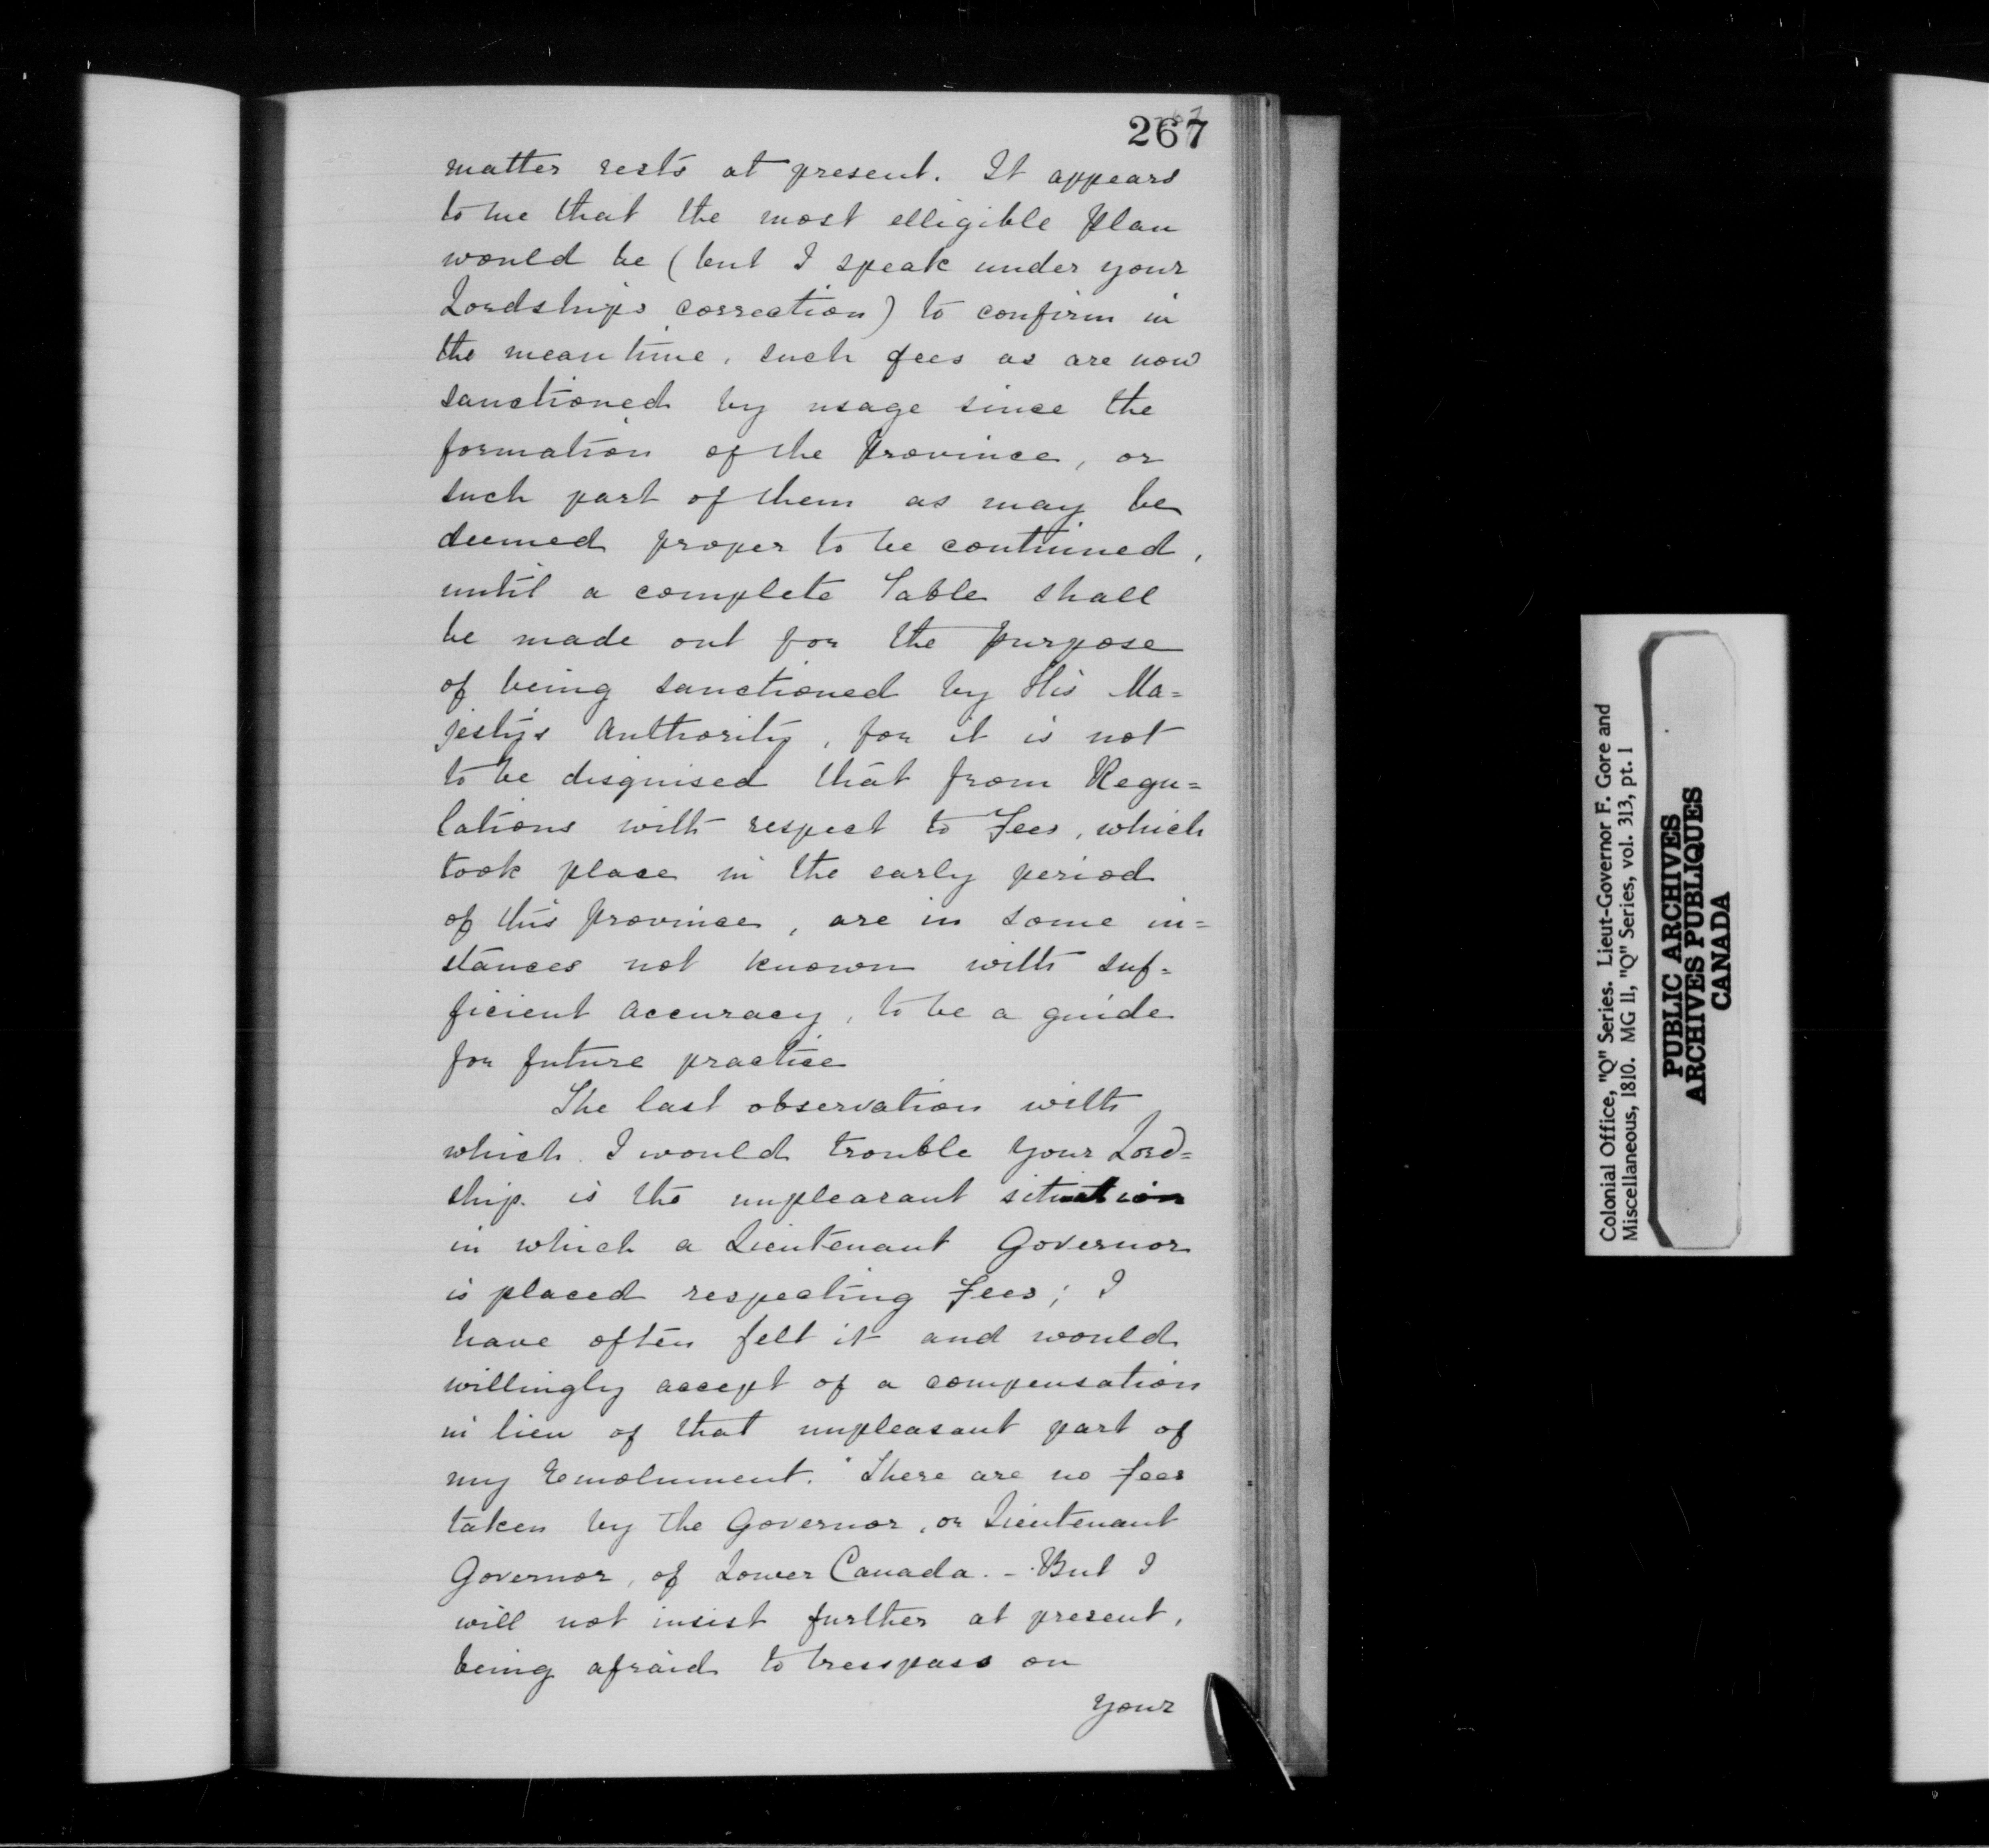 267
matter rests at present. It appears
to me that the most elligible Plan
would be (but I speak under your
Lordships correction) to confirm in
the mean time, such fees as are now
sanctioned by usage since the
formation of the Province, or
such part of them as may be
deemed proper to be continued,
until a complete Table shall
be made out for the purpose
of being sanctioned by His Ma=
jesty's Authority, for it is not
to be disguised that from Regu=
lations with respect to Fees, which
took place in the early period
of this Province, are in some in=
stances not known with suf=
ficient accuracy, to be a guide
for future practice
The last observation with
which I would trouble your Lord=
ship is the unpleasant situation
in which a Lieutenant Governor
is placed respecting Fees; I
have often felt it and would
willingly accept of a compensation
in lieu of that unpleasant part of
my Emolument. There are no fees
taken by the Governor, or Lieutenant
Governor, of Lower Canada. - But I
will not insist further at present,
being afraid to tresspass on
your
Colonial Office, "Q" Series. Lieut-Governor F. Gore and
Miscellaneous, 1810. MG 11, "Q" Series, vol. 313, pt. 1
PUBLIC ARCHIVES
ARCHIVES PUBLIQUES
CANADA